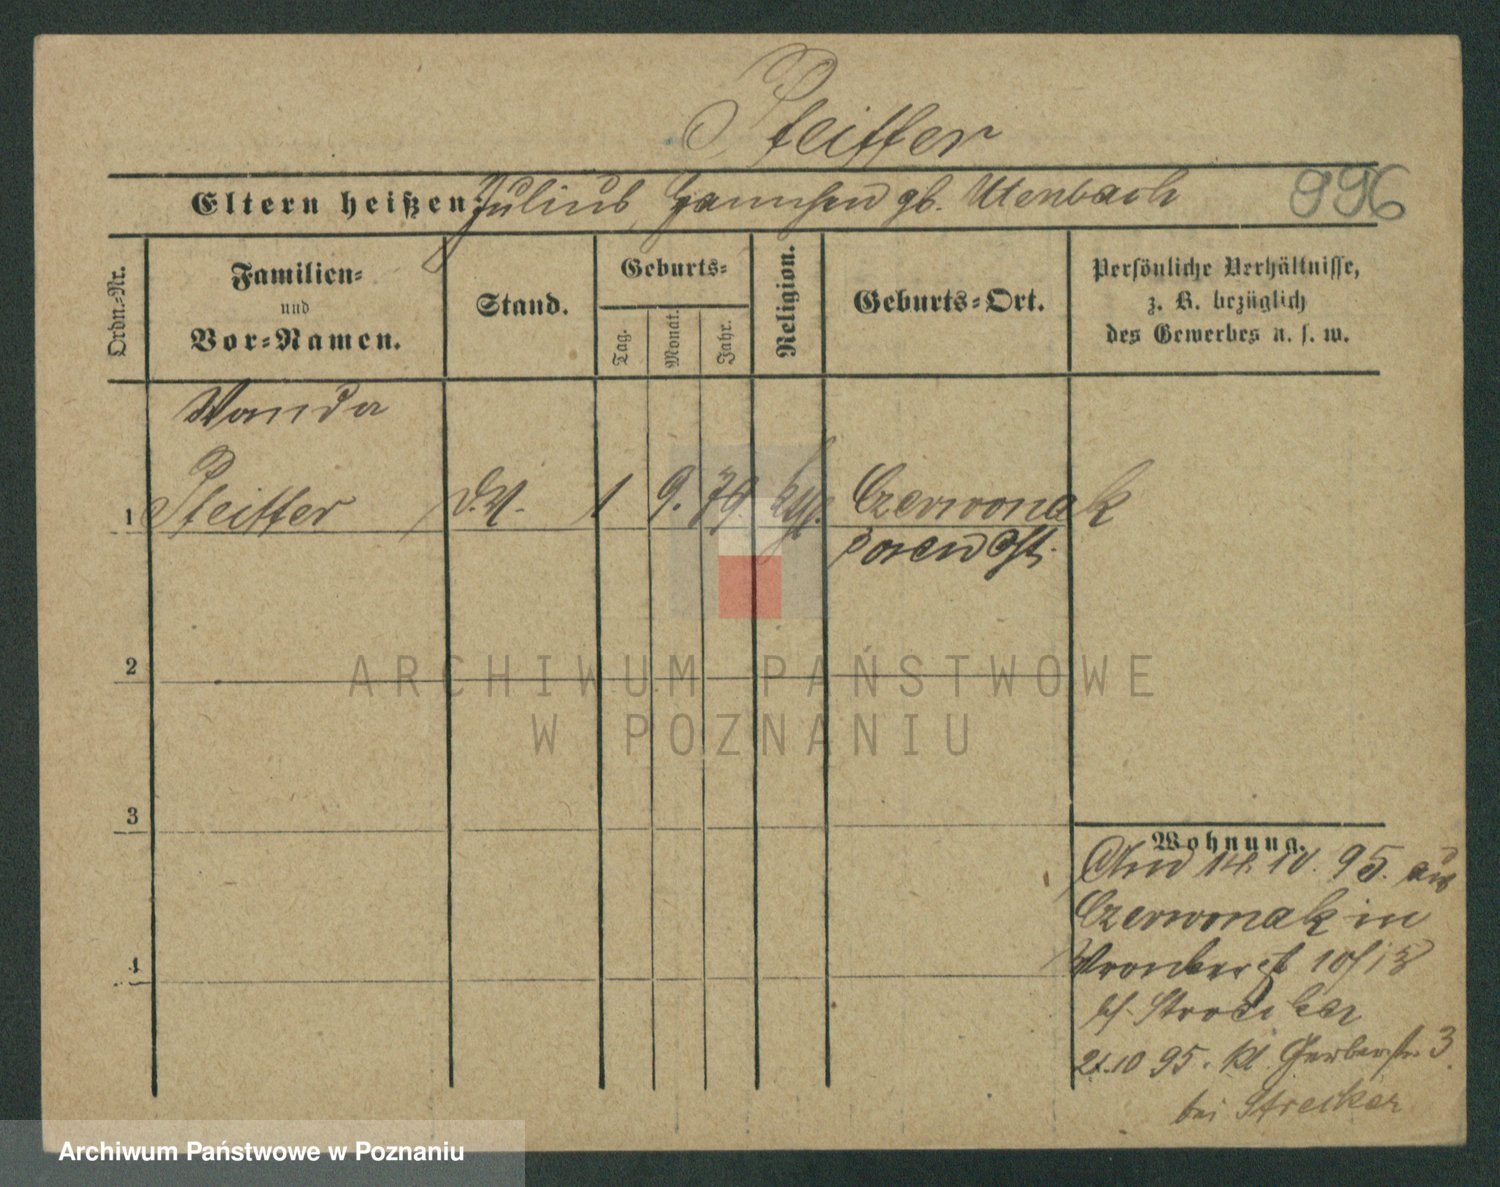 Pfeiffer
Eltern heißen: Julius, gb. Utenbach 996
Ordn.-Nr.
Familien-
und
Vor-Namen.
Stand.
Geburts-
Tag.
Monat.
Jahr.
Religion.
Geburts-Ort.
Persönliche Verhältnisse,
z. B. bezüglich
des Gewerbes u. s. w.
Wanda
1 Pfeiffer 1. 9. 79 Czerwonak
Posen Ost.
2
3
4
Wohnung.
14.10.95. aus
Czerwonak in
10/13
21.10 95. Kl. Gerberstr. 3
bei Strecker
ARCHIWUM PAŃSTWOWE
W POZNANIU
Archiwum Państwowe w Poznaniu